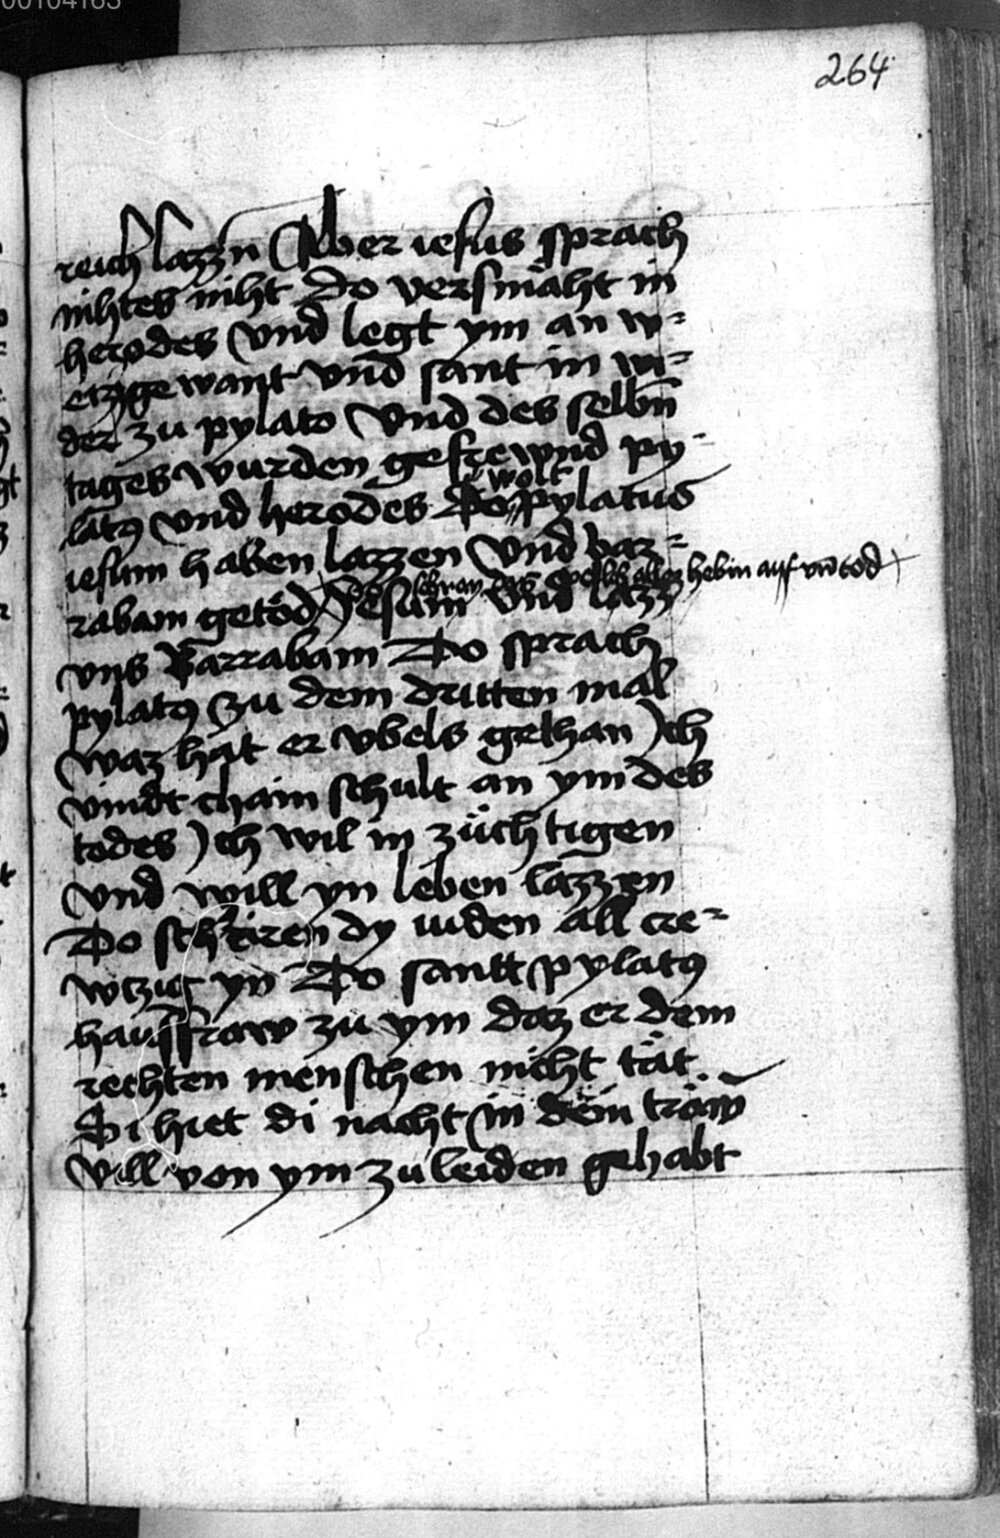 00104163
264
reich lazzen Aber iesus sprach
nihtes niht Do versmäht in
herodes Vnd legt ym an w=
eizzgewant vnd sant in wi=
der zu pylato Vnd des selbn̄
tages wurden gefrewnd py=
latꝰ vnd herodes Do wolt pylatus
iesum haben lazzen Vnd bar=
rabam getöd schray das volkh allez hebin auf vn̄ töd
Jesum vnd lazz
vns Barrabam Do sprach
pylatꝰ zu dem dritten mal
waz hat er vbels gethan Jch
vindt chain schult an ym des
todes Jch wil in züchtigen
vnd will yn leben lazzen
Do schriren dy iuden all cre=
wtzigt yn Do santt pylatꝰ
hausfrow zu ym daz er dem
rechten menschen nicht tät
Si hiet di nacht in dem träwm
vill von ym zu leiden gehabt